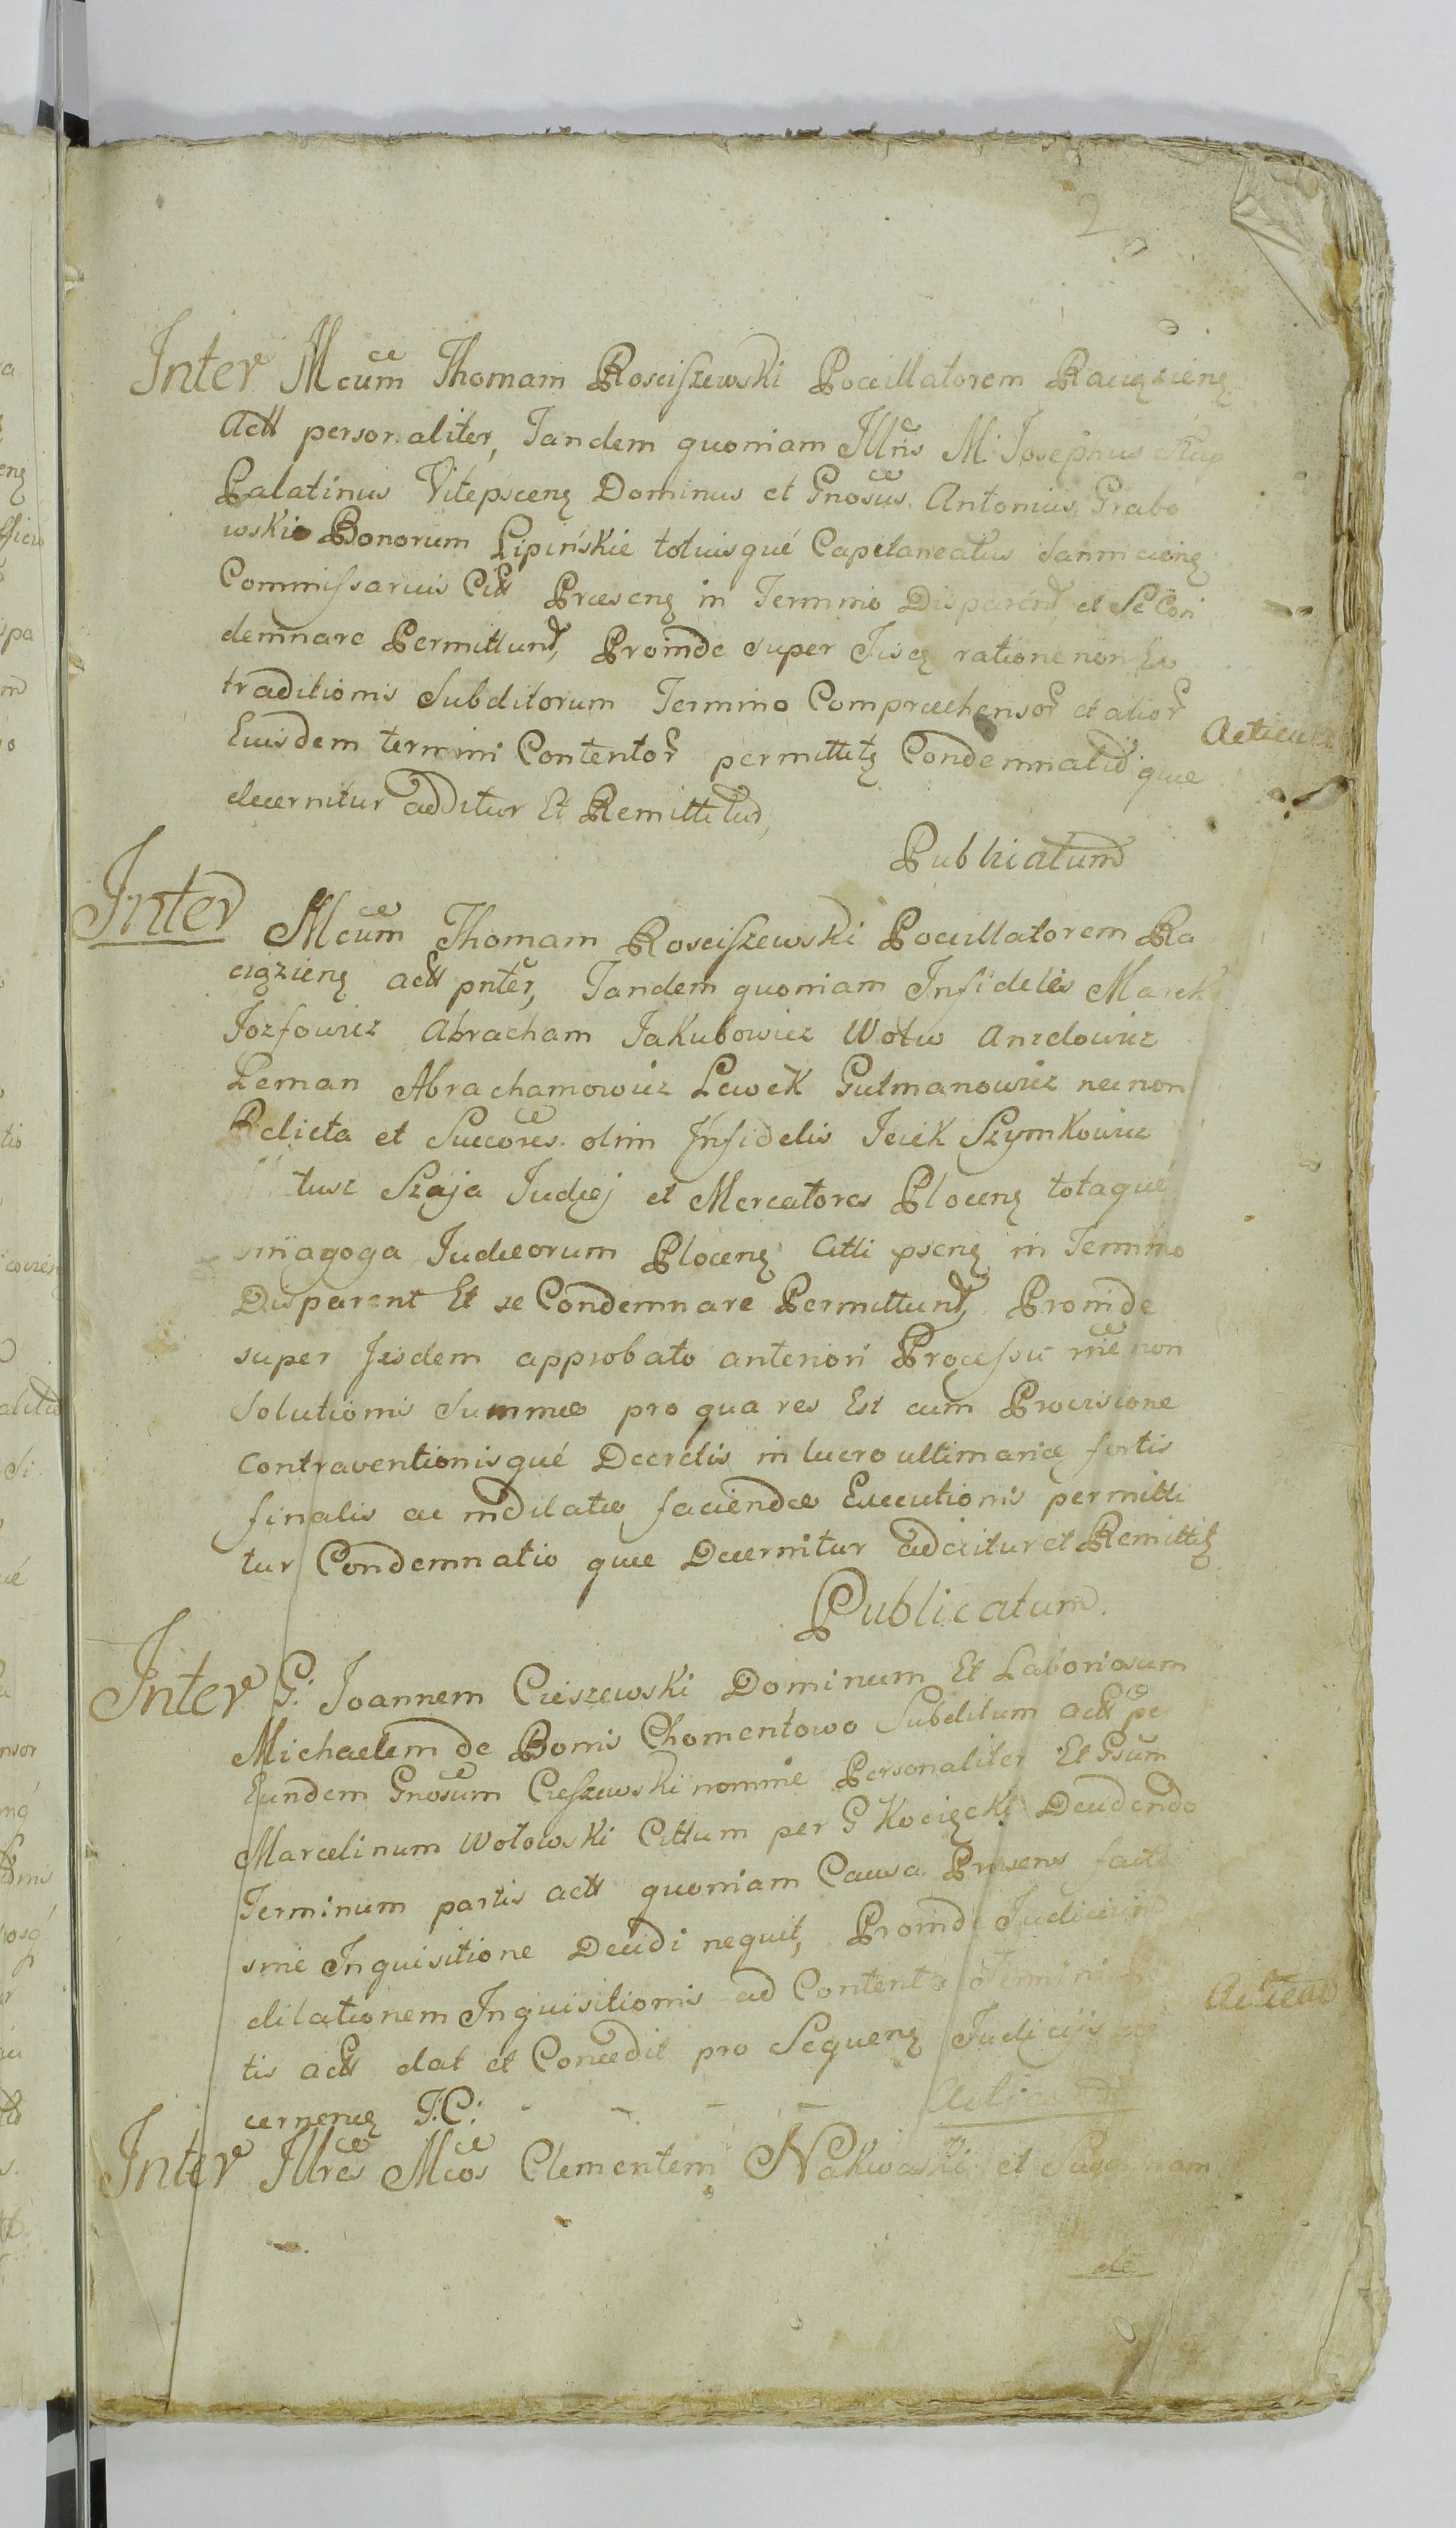 2
Inter Mcum Thomam Rosciszewski Pocillatorem Raciązieng
Actt personaliter, Tandem quoniam Illris M. Josephus
Palatinus Vitepsceng Dominus et Gnosus Antonius Grabo
wski Bonorum Lipińskie totiusqué Capitaneatus
Commissarius Citt Præseng in Termino Disparent et Se Con
demnare Permittunt, Proinde super Iisdem ratione non Ex
traditionis Subditorum Termino Compræhensor et alior
Eiusdem termini Contentor permittitg Condemnatio quæ
decernitur additur Et Remittitur,
Publicatum
Inter Mcum Thomam Rosciszewski Pocillatorem Ra
ciązieng actt pnter, Tandem quoniam Infideles Marek
Jozfowicz Abracham Jakubowicz Wolw Anzelowicz
Leman Abrachamowicz Lewek Gutmanowicz necnon
Relicta et Succores olim Infidelis Icek Szymkowicz
Szaja Judæj et Mercatores Ploceng totaqué
Judæorum Ploceng Citti pseng in Termino
Disparent Et se Condemnare Permittunt, Proinde
super Iisdem approbato anteriori Processu rne non
Solutionis Summæ pro qua res Est cum Provisione
Contraventionisqué Decretis in lucro ultimariæ fortis
finalis ac indilatæ faciendæ Executionis permitti
tur Condemnatio quæ Decernitur adcitur et Remittitg
Publicatum.
Inter G: Joannem Cieszewski Dominum Et Laboriosum
Michaelem de Bonis Chomentowo Subditum actt pe
Eundem Gnosum Cieszewski nomine Personaliter Et Gsum
Marcelinum Wołowski Cittum per G Kocięcki Decidendo
Terminum partis actt quoniam Causa Præsens facta
sine Inquisitione Decidi nequit, Proinde Judicium
dilationem Inquisitionis ad Contenta Termini
tis actt dat et Concedit pro Sequeng Judicijs
cerneneg T:C:
Inter Illres Mcos Clementem Nakwaski et
de